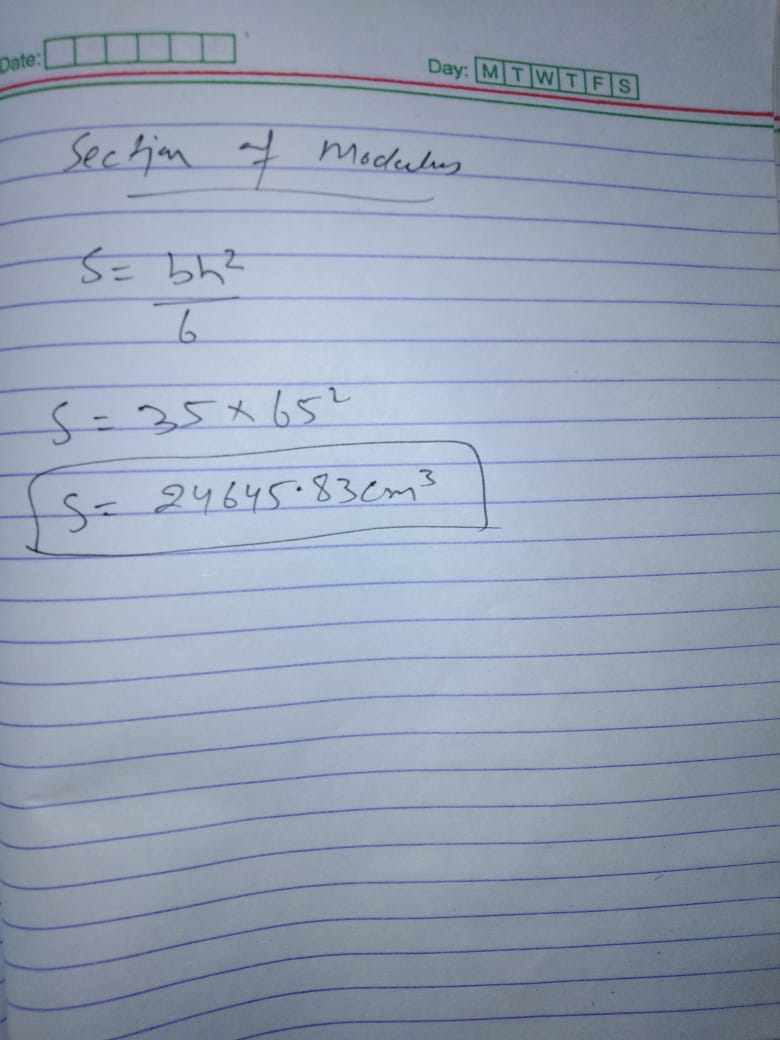 Date:
Day: M T W T F S
Section of Modulus
S = bh²
6
S = 35 × 65²
S = 24645.83 cm³